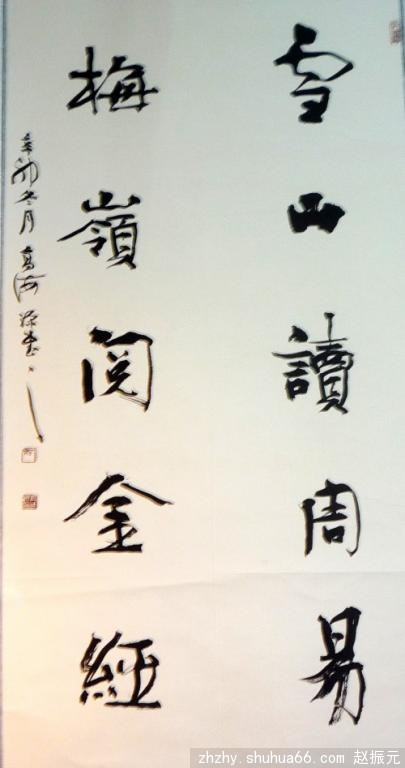 雪山讀周易
梅嶺閱金經
辛卯冬月
zhzhy.shuhua66.com 赵振元